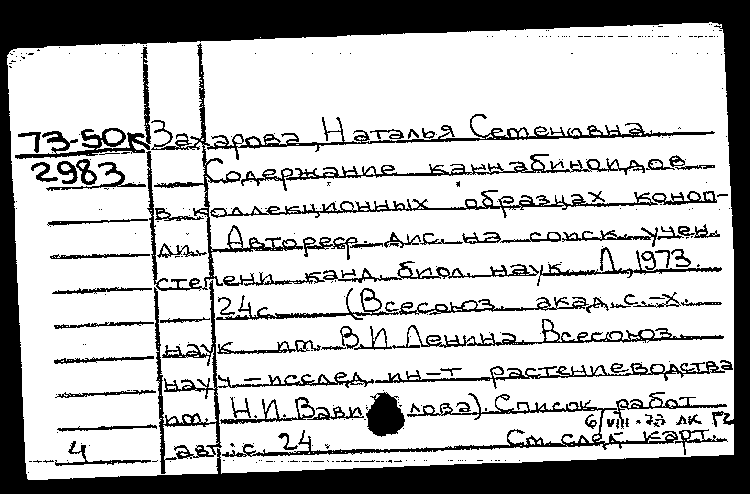 73-50к Захарова, Наталья Семеновна
2983 Содержание каннабиноидов
в коллекционных образцах коноп-
ли. Автореф. дис. на соиск. учен.
степени канд. биол. наук. Л., 1973.
24с (Всесоюз. акад. с.-х.
наук им. В.И. Ленина. Всесоюз.
науч-исслед. ин-т растениеводства
им. Н.И. Вавилова). Список работ
6/VIII-73
4 авт.: с. 24. См. след. карт.